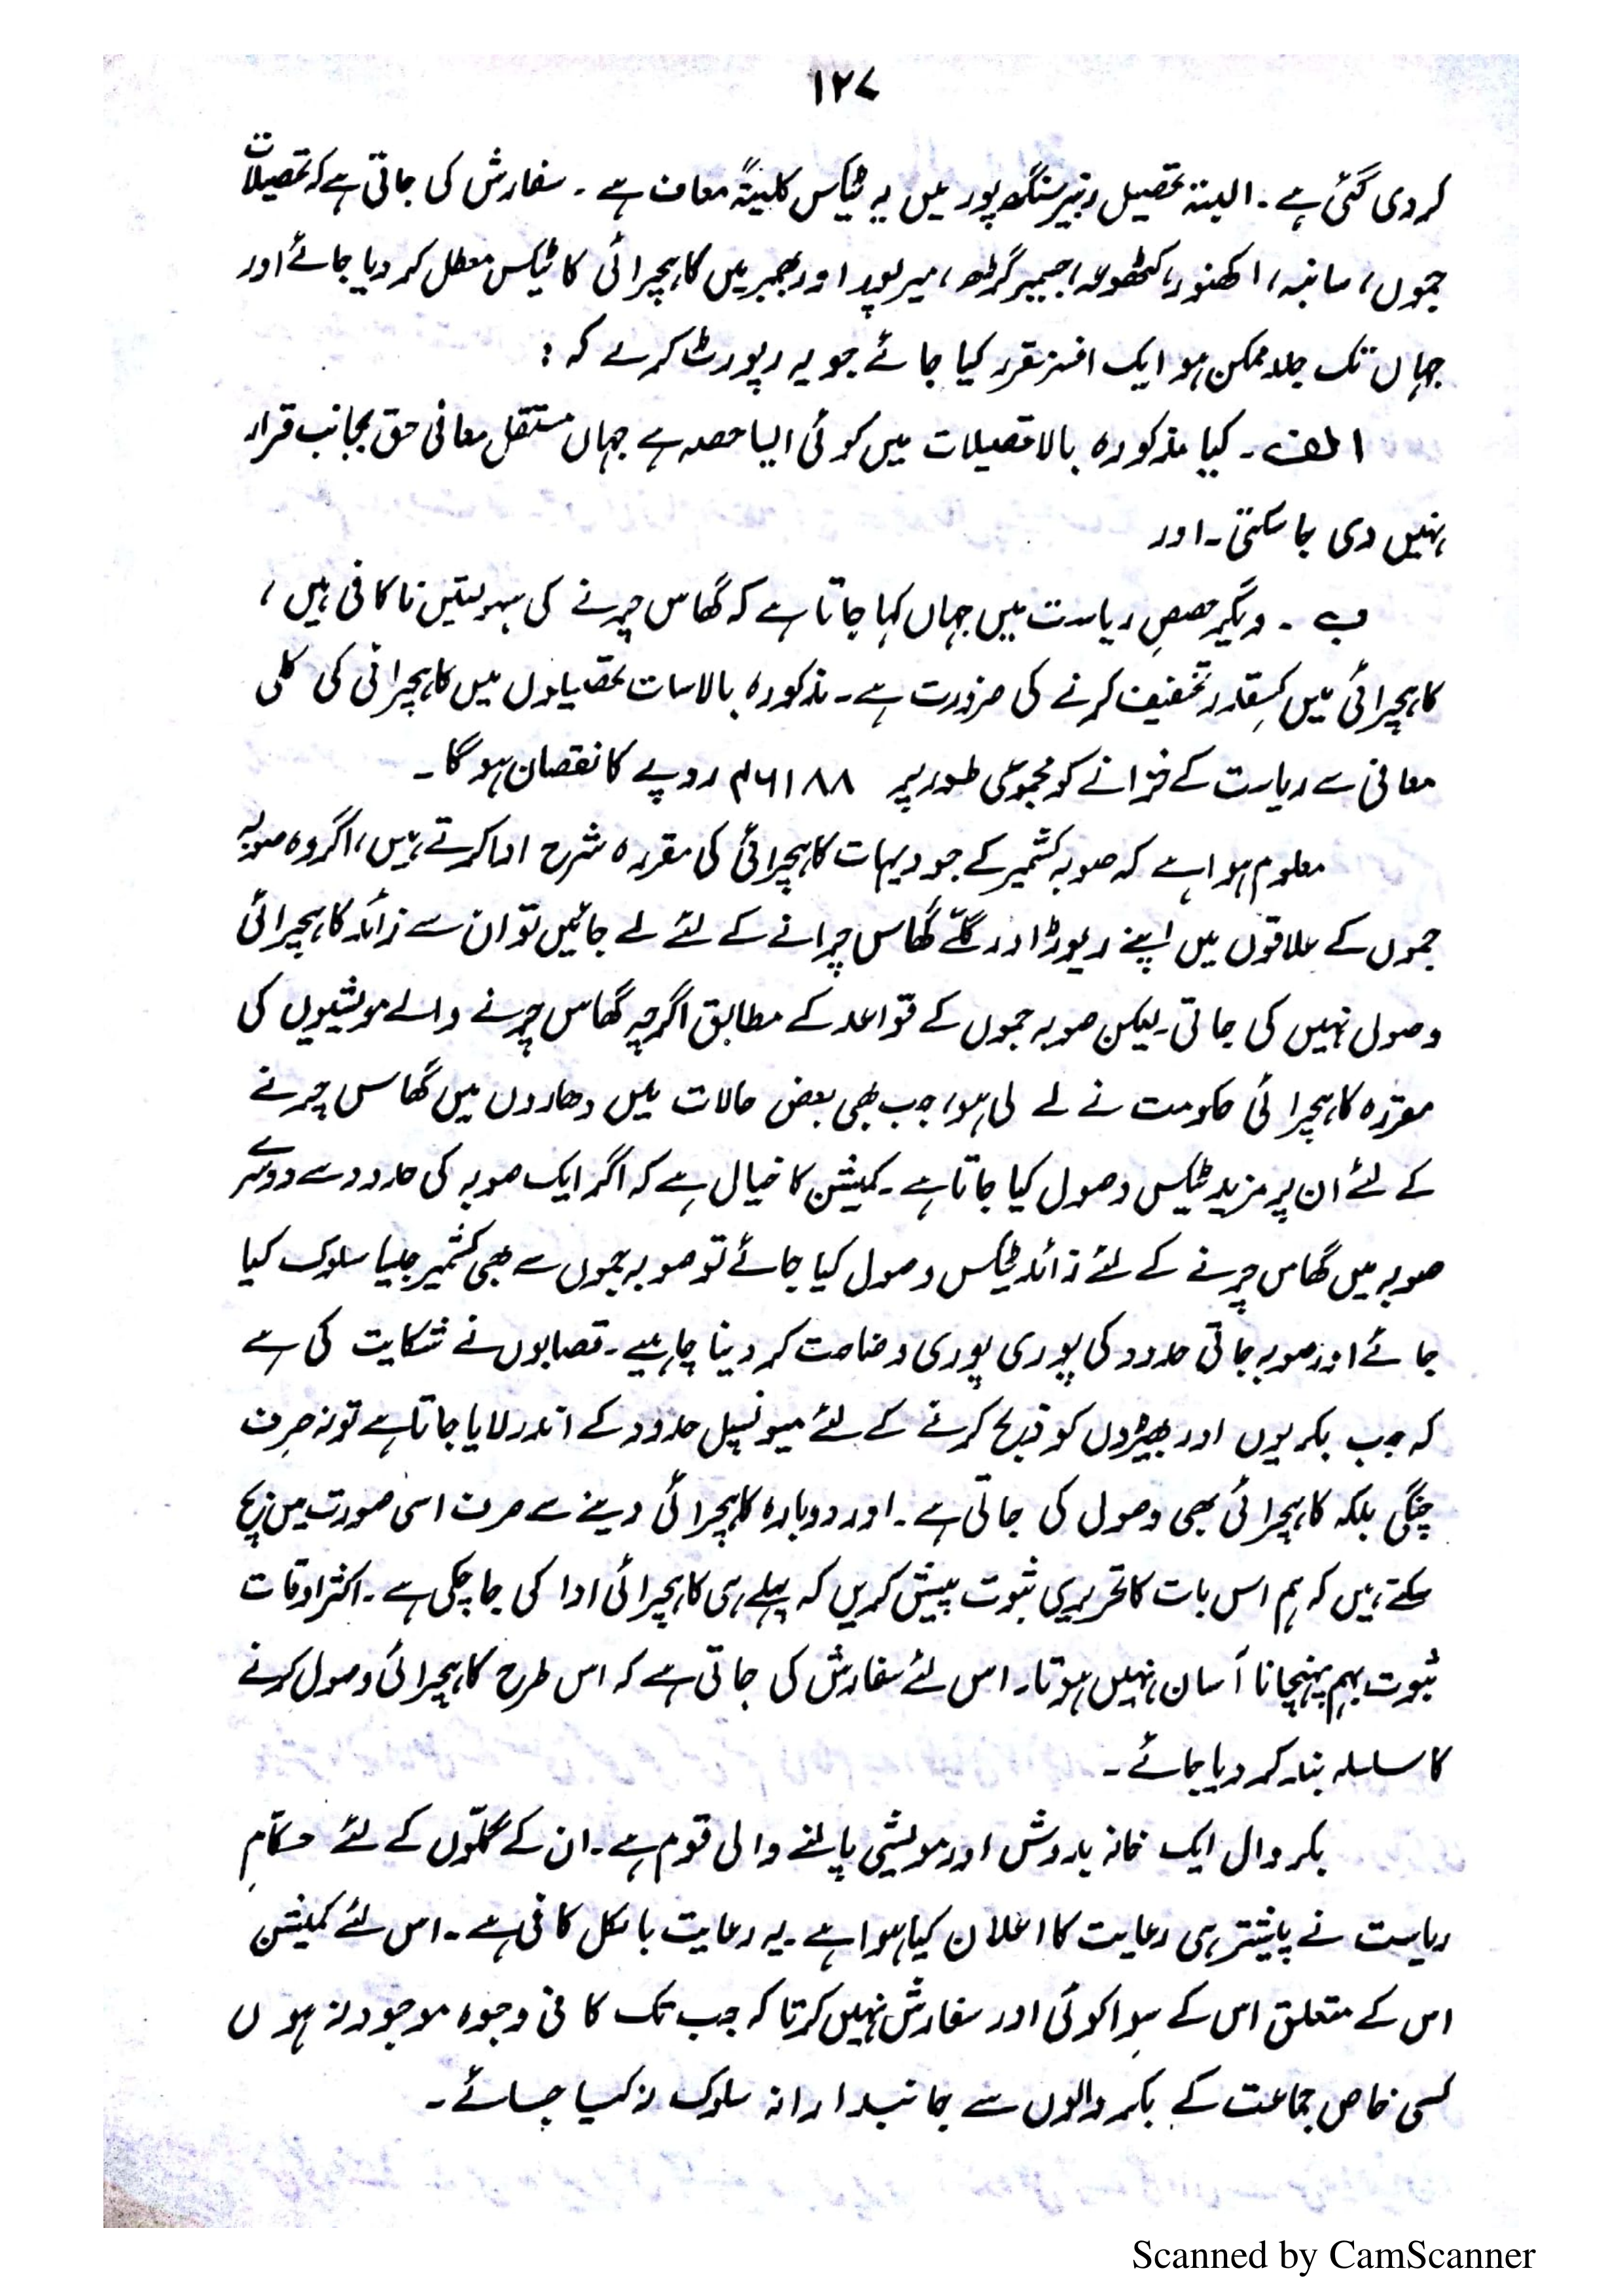 ۱۲۷
کر دی گئی ہے۔ البتہ تحصیل رنبیر سنگھ پور میں یہ ٹیکس کلیتہً معاف ہے۔ سفارش کی جاتی ہے کہ تحصیلات
جموں، سانبہ، اکھنور، کٹھوعہ، جسمیر گڑھ، میرپور اور بھمبر میں کاہچرائی کا ٹیکس معطل کر دیا جائے اور
جہاں تک جلد ممکن ہو ایک افسر مقرر کیا جائے جو یہ رپورٹ کرے کہ:
الف۔ کیا مذکورہ بالا تحصیلات میں کوئی ایسا حصہ ہے جہاں مستقل معافی حق بجانب قرار
نہیں دی جا سکتی۔ اور
ب۔ دیگر حصصِ ریاست میں جہاں کہا جاتا ہے کہ گھاس چرنے کی سہولتیں ناکافی ہیں،
کاہچرائی میں کسِقدر تخفیف کرنے کی ضرورت ہے۔ مذکورہ بالا سات تحصیلوں میں کاہچرائی کی کلی
معافی سے ریاست کے خزانے کو مجموعی طور پر ۴۶۱۸۸ روپے کا نقصان ہو گا۔
معلوم ہوا ہے کہ صوبہ کشمیر کے جو دیہات کاہچرائی کی مقررہ شرح ادا کرتے ہیں، اگر وہ صوبہ
جموں کے علاقوں میں اپنے ریوڑ اور گلّے گھاس چرانے کے لئے لے جائیں تو ان سے زائد کاہچرائی
وصول نہیں کی جاتی۔ لیکن صوبہ جموں کے قواعد کے مطابق اگرچہ گھاس چرنے والے مویشیوں کی
مقررہ کاہچرائی حکومت نے لے لی ہو، جب بھی بعض حالات میں دھاروں میں گھاس چرنے
کے لئے ان پر مزید ٹیکس وصول کیا جاتا ہے۔ کمیشن کا خیال ہے کہ اگر ایک صوبہ کی حدود سے دوسرے
صوبہ میں گھاس چرنے کے لئے زائد ٹیکس وصول کیا جائے تو صوبہ جموں سے بھی کشمیر جیسا سلوک کیا
جائے اور صوبہ جاتی حدود کی پوری پوری وضاحت کر دینا چاہیے۔ قصابوں نے شکایت کی ہے
کہ جب بکریوں اور بھیڑوں کو ذبح کرنے کے لئے میونسپل حدود کے اندر لایا جاتا ہے تو نہ صرف
چنگی بلکہ کاہچرائی بھی وصول کی جاتی ہے۔ اور دوبارہ کاہچرائی دینے سے صرف اسی صورت میں بچ
سکتے ہیں کہ ہم اس بات کا تحریری ثبوت پیش کریں کہ پہلے ہی کاہچرائی ادا کی جا چکی ہے۔ اکثر اوقات
ثبوت بہم پہنچانا آسان نہیں ہوتا۔ اس لئے سفارش کی جاتی ہے کہ اس طرح کاہچرائی وصول کرنے
کا سلسلہ بند کر دیا جائے۔
بکروال ایک خانہ بدوش اور مویشی پالنے والی قوم ہے۔ ان کے گلّوں کے لئے حکّامِ
ریاست نے پیشتر ہی رعایت کا اعلان کیا ہوا ہے۔ یہ رعایت بالکل کافی ہے۔ اس لئے کمیشن
اس کے متعلق اس کے سِوا کوئی اور سفارش نہیں کرتا کہ جب تک کافی وجوہ موجود نہ ہوں
کسی خاص جماعت کے بکروالوں سے جانبدارانہ سلوک نہ کیا جائے۔
Scanned by CamScanner